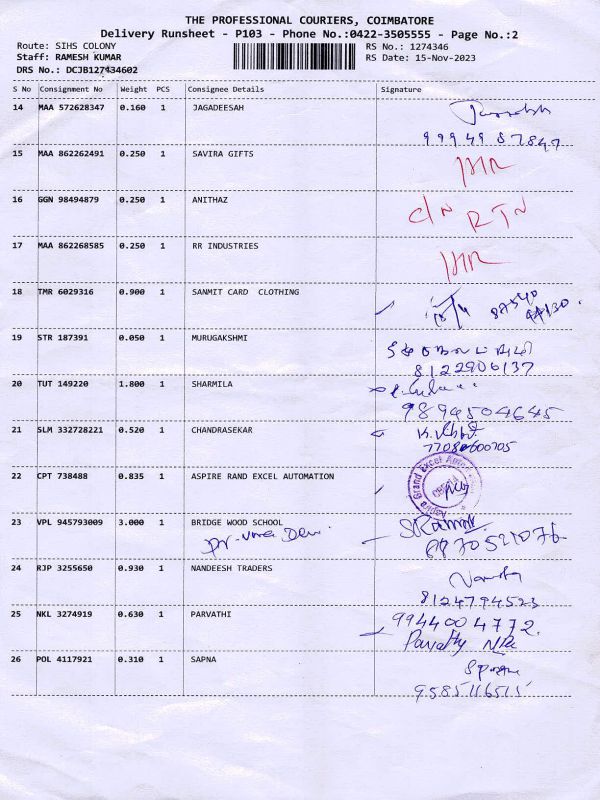 THE PROFESSIONAL COURIERS, COIMBATORE
Delivery Runsheet - P103 - Phone No.:0422-3505555 - Page No.:2
Route: SIHS COLONY RS No.: 1274346
Staff: RAMESH KUMAR RS Date: 15-Nov-2023
DRS No.: DCJB127434602
S No Consignment No Weight PCS Consignee Details Signature
14 MAA 572628347 0.160 1 JAGADEESAH
9994987847
15 MAA 862262491 0.250 1 SAVIRA GIFTS
16 GGN 98494879 0.250 1 ANITHAZ C/N RTN
17 MAA 862268585 0.250 1 RR INDUSTRIES
18 TMR 6029316 0.900 1 SANMIT CARD CLOTHING
19 STR 187391 0.050 1 MURUGAKSHMI
8122906137
20 TUT 149220 1.800 1 SHARMILA
9894504645
21 SLM 332728221 0.520 1 CHANDRASEKAR
7708600705
22 CPT 738488 0.835 1 ASPIRE RAND EXCEL AUTOMATION
23 VPL 945793009 3.000 1 BRIDGE WOOD SCHOOL
24 RJP 3255650 0.930 1 NANDEESH TRADERS
8124794523
25 NKL 3274919 0.630 1 PARVATHI 9944004772.
26 POL 4117921 0.310 1 SAPNA
9585116515